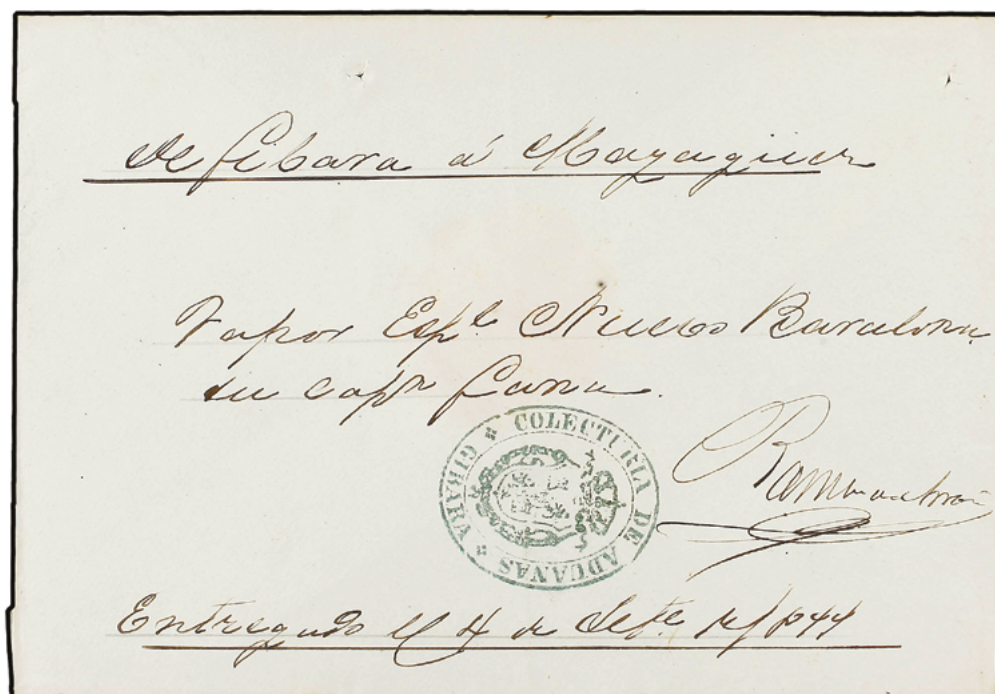 de Gibara á Mayagüez
Vapor Espl. Nuevo Barcelona
su capn.
COLECTURIA DE ADUANAS
GIBARA
Entregado el 4 de Sete. de